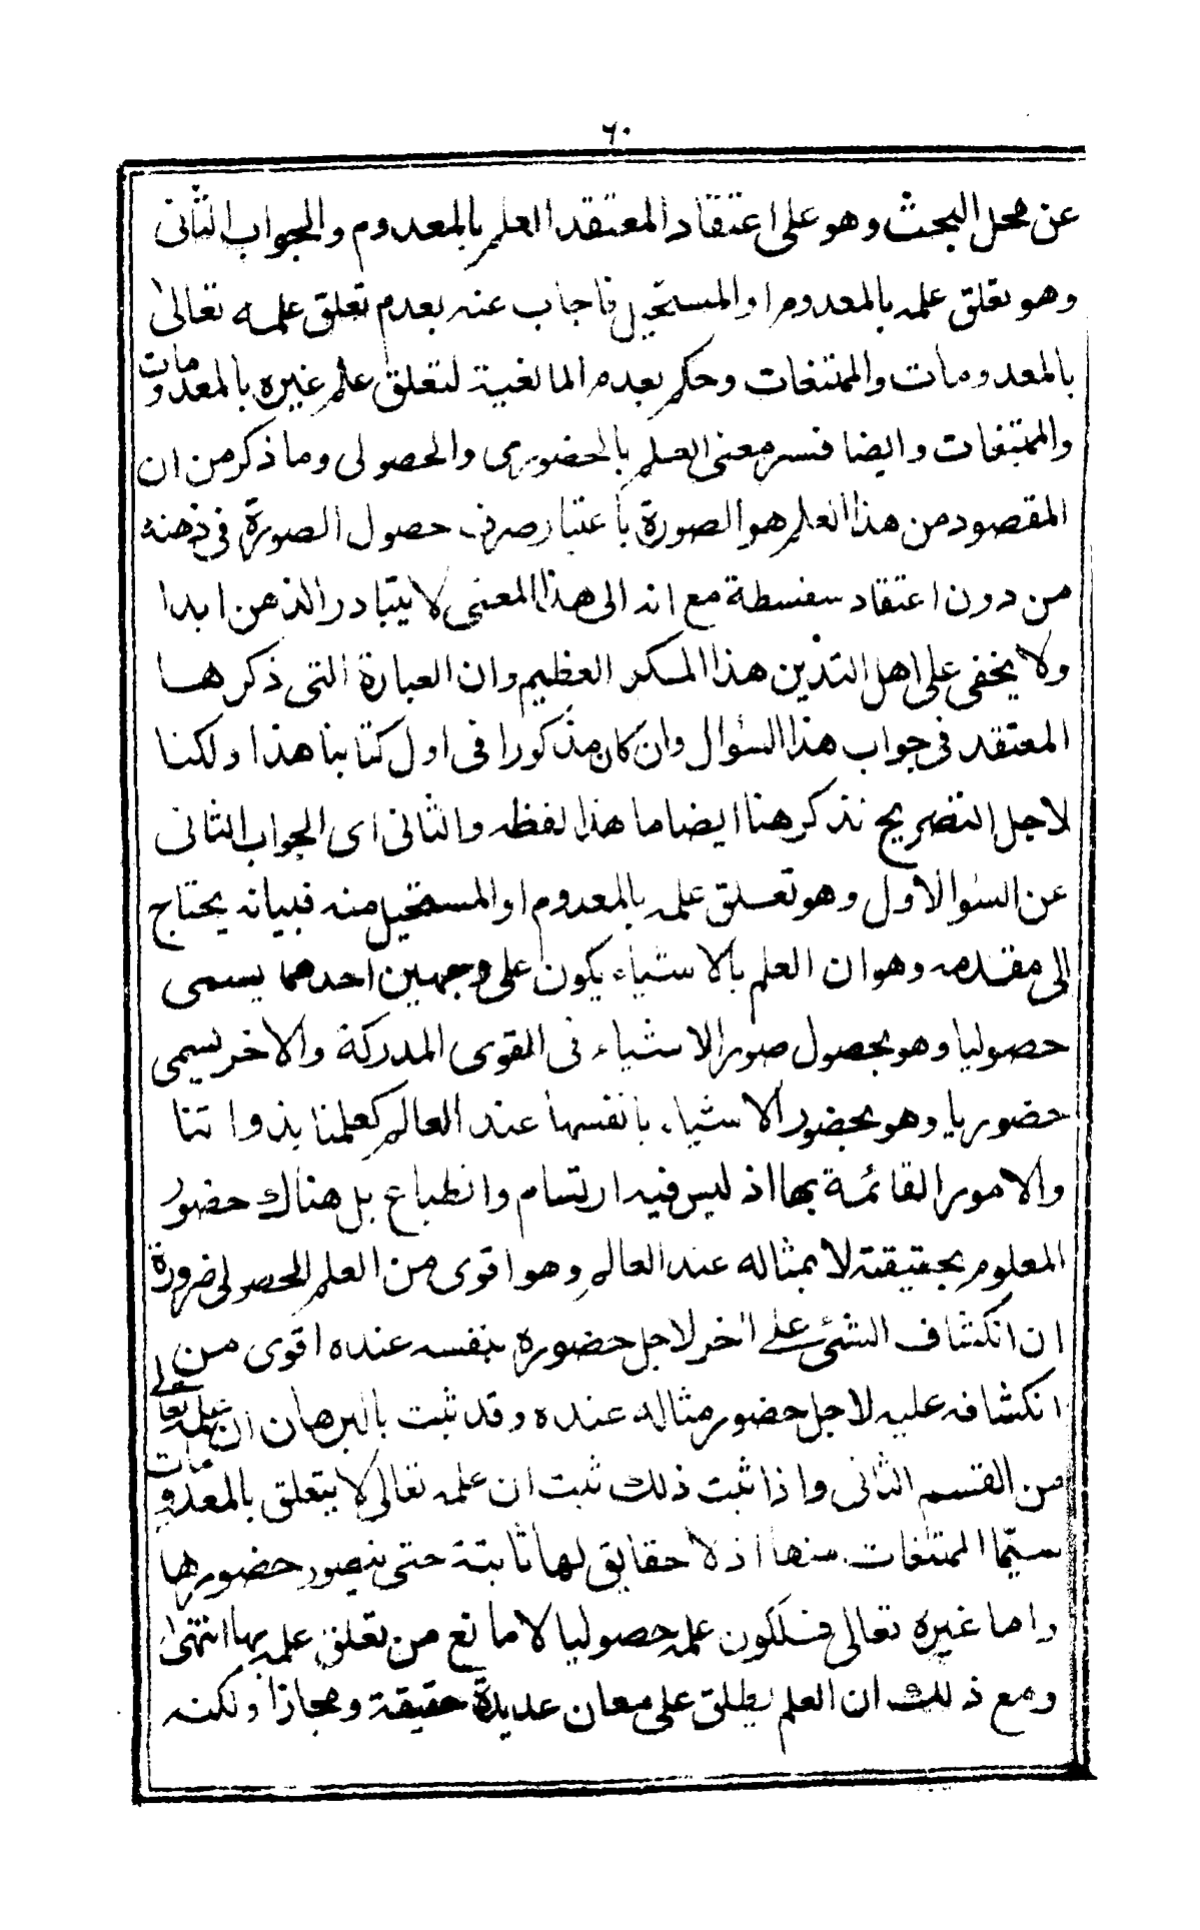 ٦٠
عن محل البحث وهو على اعتقاد المعتقد العلم بالمعدوم والجواب الثانى
وهو تعلق علمه بالمعدوم او المستحيل فاجاب عنه بعدم تعلق علمه تعالىٰ
بالمعدومات والممتنعات وحكم بعدم المانعية لتعلق علم غيره بالمعدومات
والممتنعات وايضا فسر معنى العلم بالحضورى والحصولى وما ذكر من ان
المقصود من هذا العلم هو الصورة باعتبار صرف حصول الصورة فى ذهنه
من دون اعتقاد سفسطة مع انه الى هذا المعنى لا يتبادر الذهن ابدا
ولا يخفى على اهل التدين هذا المكر العظيم وان العبارة التى ذكرها
المعتقد فى جواب هذا السؤال وان كان مذكورا فى اول كتابنا هذا ولكنا
لاجل التصريح نذكر هنا ايضا ما هذا لفظه والثانى اى الجواب الثانى
عن السؤالاول وهو تعلق علمه بالمعدوم او المستحيل منه فبيانه يحتاج
الى مقدمه وهو ان العلم بالاشياء يكون على وجهين احدهما يسمى
حصوليا وهو بحصول صور الاشياء فى القوى المدركة والاخر يسمى
حضوريا وهو بحضور الاشياء بانفسها عند العالم كعلمنا بذواتنا
والامور القائمة بها اذ ليس فيه ارتسام وانطباع بل هناك حضور
المعلوم بحقيقته لا بمثاله عند العالم وهو اقوى من العلم الحصولى ضرورة
ان انكشاف الشئ على اخر لاجل حضوره بنفسه عنده اقوى من
انكشافه عليه لاجل حضور مثاله عنده وقد ثبت بالبرهان ان علمه تعالى
من القسم الثانى واذا ثبت ذلك ثبت ان علمه تعالى لا يتعلق بالمعدومات
سيّما الممتنعات منها اذ لا حقايق لها ثابتة حتى يتصور حضورها
واما غيره تعالى فلكون علمه حصوليا لا مانع من تعلق علمه بها انتهىٰ
ومع ذلك ان العلم يطلق على معان عديدة حقيقة ومجازا ولكنه